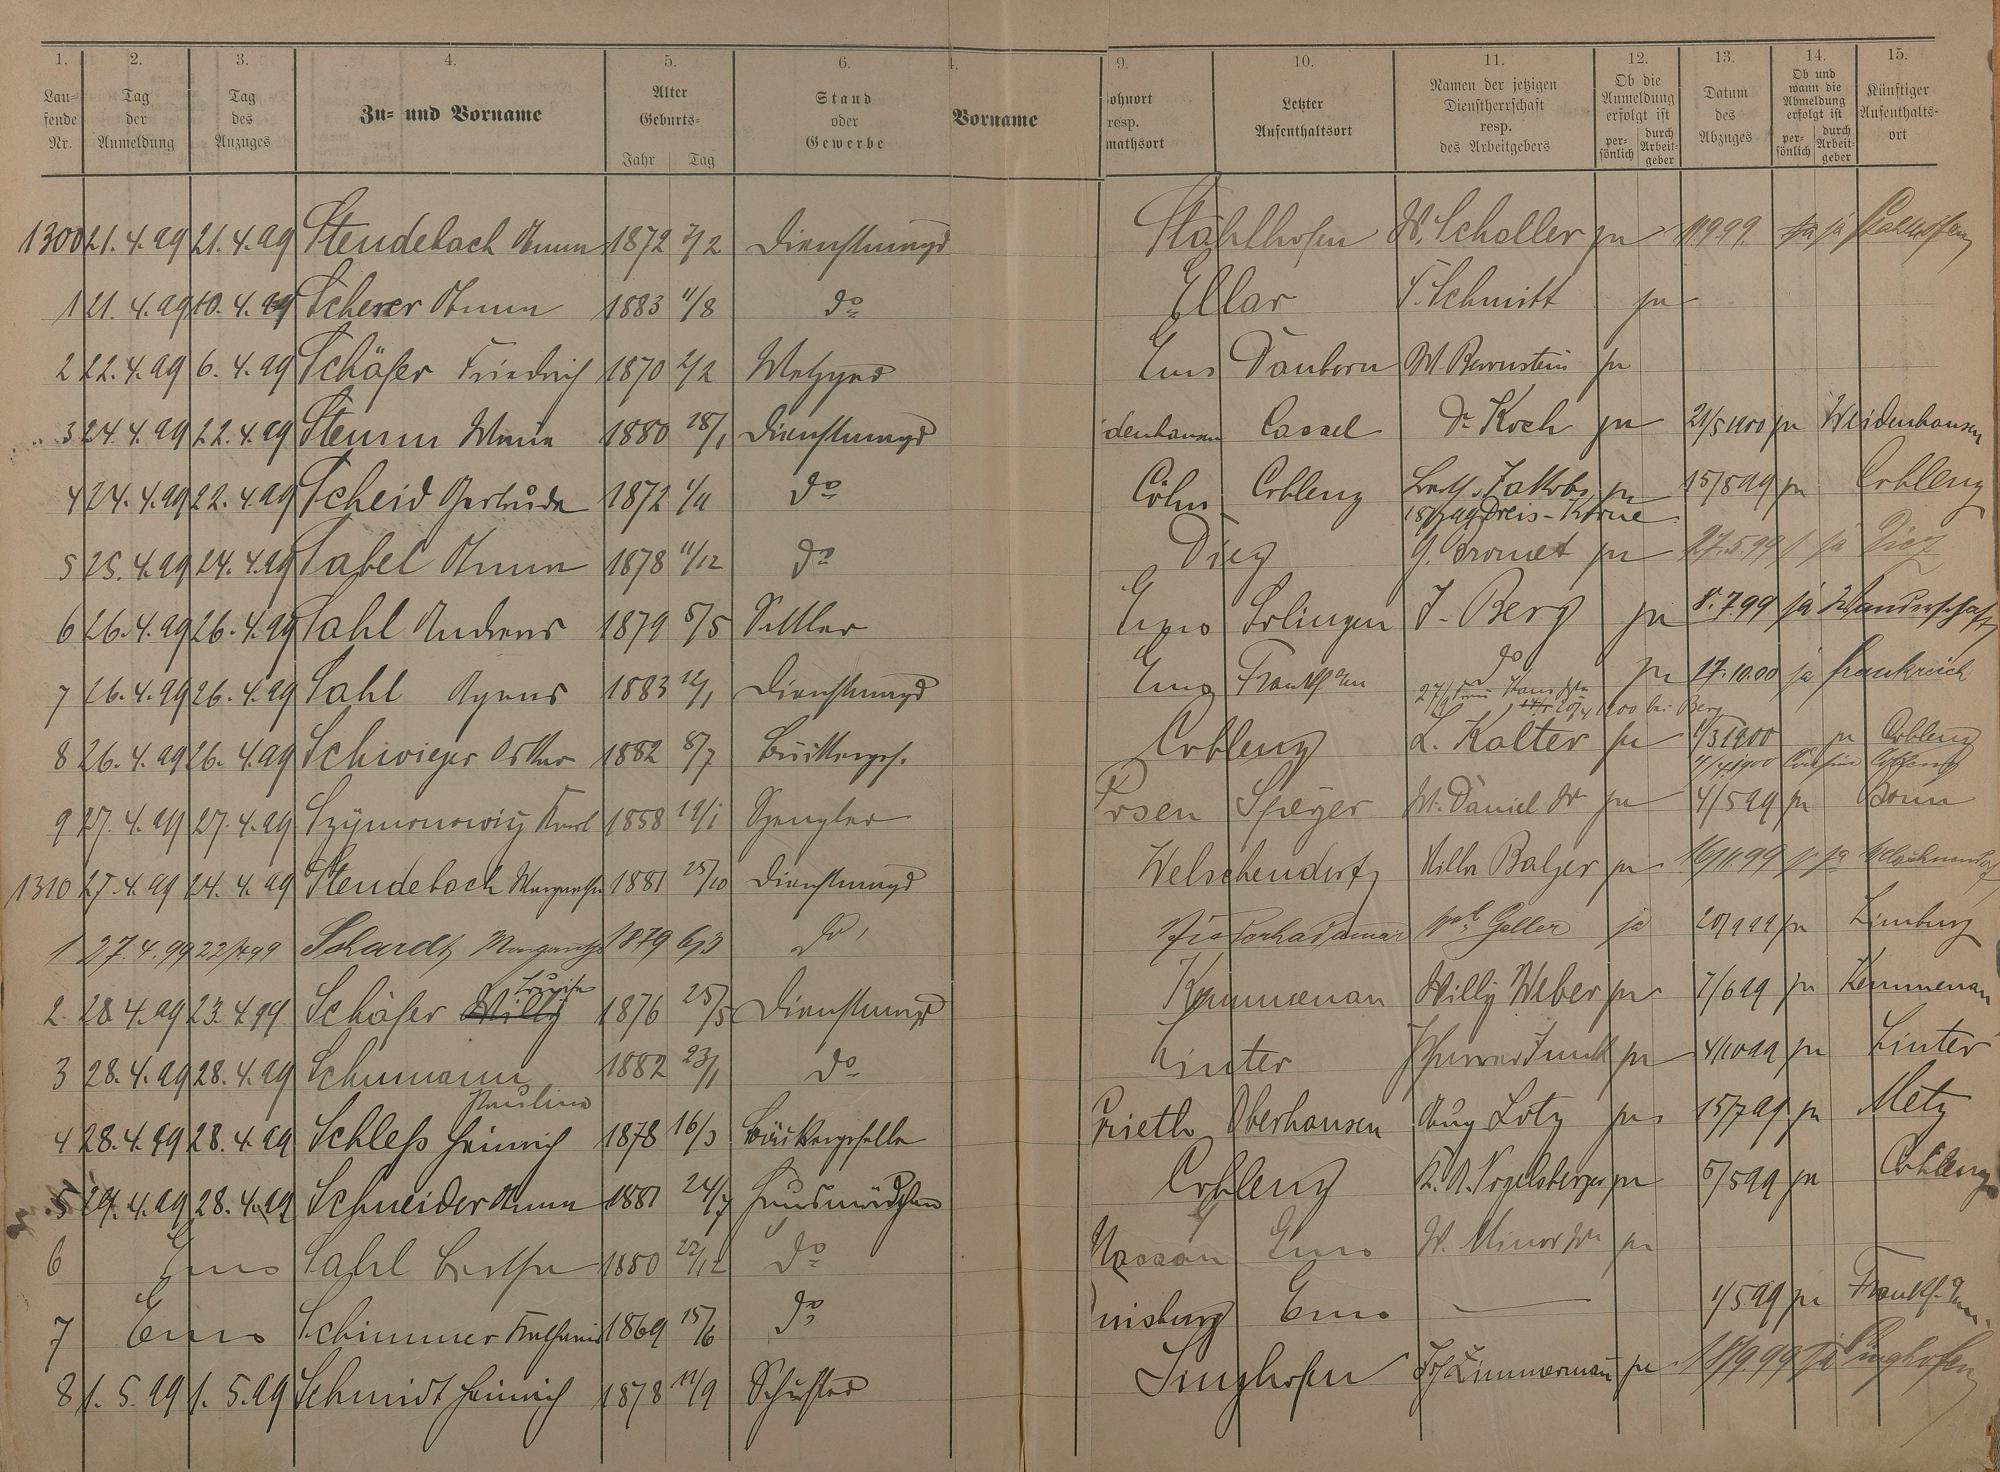 1. 2. 3. 4. 5. 6. 4. 9. 10. 11. 12. 13. 14. 15.
Lau- fende Nr. Tag der Anmeldung Tag des Anzuges Zu- und Vorname Alter Geburts- Jahr Tag Stand oder Gewerbe Vorname ohnort resp. mathsort Letzter Aufenthaltsort Namen der jetzigen Dienstherrschaft resp. des Arbeitgebers Ob die Anmeldung erfolgt ist per- sönlich durch Arbeit- geber Datum des Abzuges Ob und wann die Abmeldung erfolgt ist per- sönlich durch Arbeit- geber Künftiger Aufenthalts- ort
1300 21.4.99 21.4.99 Steudebach Anna 1872 7/2 Dienstmagd Stahlhofen W. Scholler ja 11.9.99. ja Stahlhofen
1 21.4.99 10.4.99 Scherer Anna 1883 11/8 do Ellar T. Schmitt ja
2 22.4.99 6.4.99 Schäfer Friedrich 1870 2/2 Metzger Ems Dauborn M. Bernstein ja
3 24.4.99 22.4.99 Stemm 1880 28/1 Dienstmagd idenhausen Cassel Dr Koch ja 21/5 1900 ja Weidenhausen
4 24.4.99 22.4.99 Scheid Gertrude 1872 1/11 do Cöln Coblenz Jakobs ja 15/5 99 ja Coblenz
5 25.4.99 24.4.99 Sabel Anna 1878 11/12 do Diez G. Bromet ja 27.5.99 ja Diez
6 26.4.99 26.4.99 Sahl Andreas 1879 5/5 Sattler Ems Solingen J. Berg ja 8.7.99 ja Wanderschaft
7 26.4.99 26.4.99 Sahl Agnes 1883 12/1 Dienstmagd Ems Frankf a/m do ja 17.10.00 ja Frankreich
bei Berg
8 26.4.99 26.4.99 Schwieger Oskar 1882 8/7 Bäckergef. Coblenz L. Kalter ja 1/3 1900 ja Coblenz
9 27.4.99 27.4.99 Szymonowitz Karl 1858 19/1 Spengler Posen Speyer M. Daniel Wr ja 4/5 99 ja Bonn
1310 27.4.99 24.4.99 Steudebach Margarethe 1881 25/10 Dienstmagd Welschendorf Balzer ja 16/11.99 ja
1 27.4.99 22/4 99 Schardt 1879 6/3 do Geller ja 20/9 99 ja Limburg
2 28.4.99 23.4.99 Schäfer Luise 1876 25/5 Dienstmagd Kemmenau Willy Weber ja 7/6 99 ja Kemmenau
3 28.4.99 28.4.99 Schumann 1882 23/1 do Linter ja 4/10 99 ja Linter
Pauline
4 28.4.99 28.4.99 Schleß Heinrich 1878 16/3 Bäckergeselle Prieth Oberhausen Aug Lotz ja 15/7 99 ja Metz
5 29.4.99 28.4.99 Schneider Anna 1881 24/7 Hausmädchen Coblenz K. A. Vogelsberger ja 5/5 99 ja Coblenz
6 Ems Sahl Bertha 1880 22/12 do Nassau Ems W. Minor Wr ja
7 Ems Schimmer Katharina 1869 15/6 do uisburg Ems 1/5 99 ja Frankf. a/m.
8 1.5.99 1.5.99 Schmidt Heinrich 1878 11/9 Schuster Singhofen Jos Zimmermann ja 18/9.99 ja Singhofen